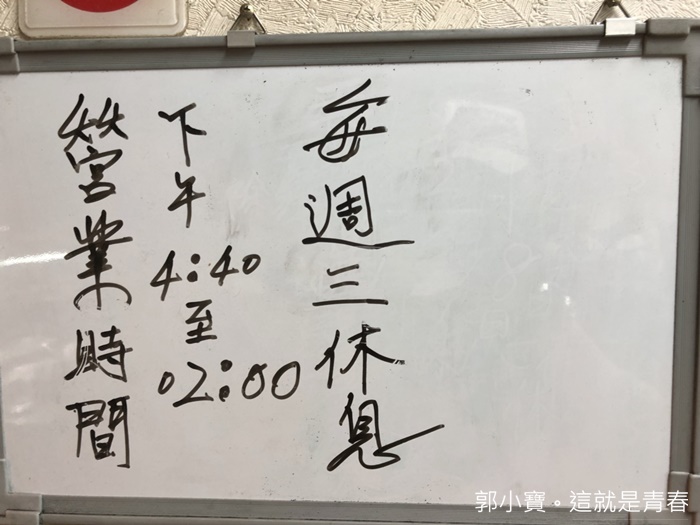 每週三休息
下午4:40至02:00
營業時間
郭小寶。這就是青春